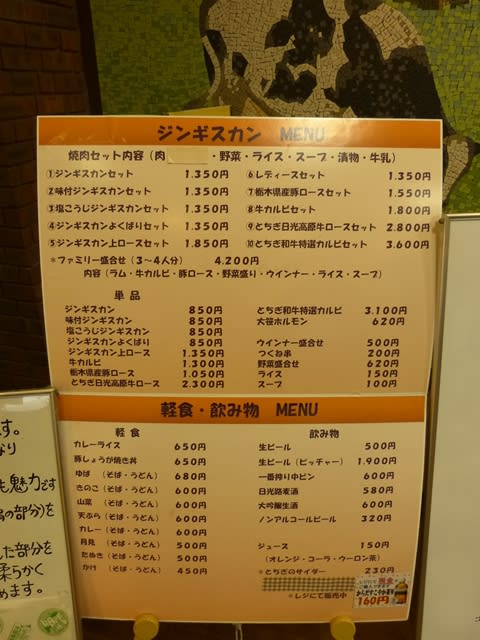 ジンギスカン MENU
焼肉セット内容（肉 ・野菜・ライス・スープ・漬物・牛乳）
①ジンギスカンセット 1.350円
②味付ジンギスカンセット 1.350円
③塩こうじジンギスカンセット 1.350円
④ジンギスカンよくばりセット 1.350円
⑤ジンギスカン上ロースセット 1.850円
⑥レディースセット 1.350円
⑦栃木県産豚ロースセット 1.550円
⑧牛カルビセット 1.800円
⑨とちぎ日光高原牛ロースセット 2.800円
⑩とちぎ和牛特選カルビセット 3.600円
＊ファミリー盛合せ（3～4人分） 4.200円
内容（ラム・牛カルビ・豚ロース・野菜盛り・ウインナー・ライス・スープ）
単品
ジンギスカン 850円
味付ジンギスカン 850円
塩こうじジンギスカン 850円
ジンギスカンよくばり 850円
ジンギスカン上ロース 1.350円
牛カルビ 1.300円
栃木県産豚ロース 1.050円
とちぎ日光高原牛ロース 2.300円
とちぎ和牛特選カルビ 3.100円
大笹ホルモン 620円
ウインナー盛合せ 500円
つくね串 200円
野菜盛合せ 620円
ライス 150円
スープ 100円
軽食・飲み物 MENU
軽食
カレーライス 650円
豚しょうが焼き丼 650円
ゆば（そば・うどん） 680円
きのこ（そば・うどん） 600円
山菜（そば・うどん） 600円
天ぷら（そば・うどん） 600円
カレー（そば・うどん） 600円
月見（そば・うどん） 500円
たぬき（そば・うどん） 500円
かけ（そば・うどん） 450円
飲み物
生ビール 500円
生ビール（ピッチャー） 1.900円
一番搾り中ビン 600円
日光路麦酒 580円
大吟醸生酒 600円
ノンアルコールビール 320円
ジュース 150円
（オレンジ・コーラ・ウーロン茶）
＊とちぎのサイダー 230円
＊レジにて販売中
からだすこやか茶W
160円
す。
なり
も魅力です
の部分）を
た部分を
柔らかく
めます。